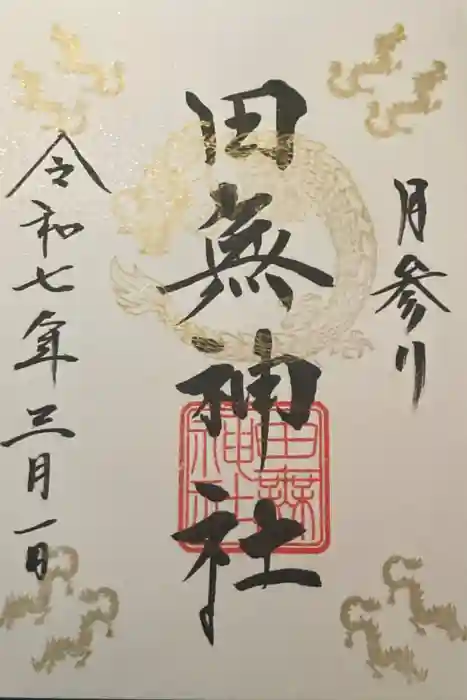 月参り
田無神社
田無神社
令和七年三月一日